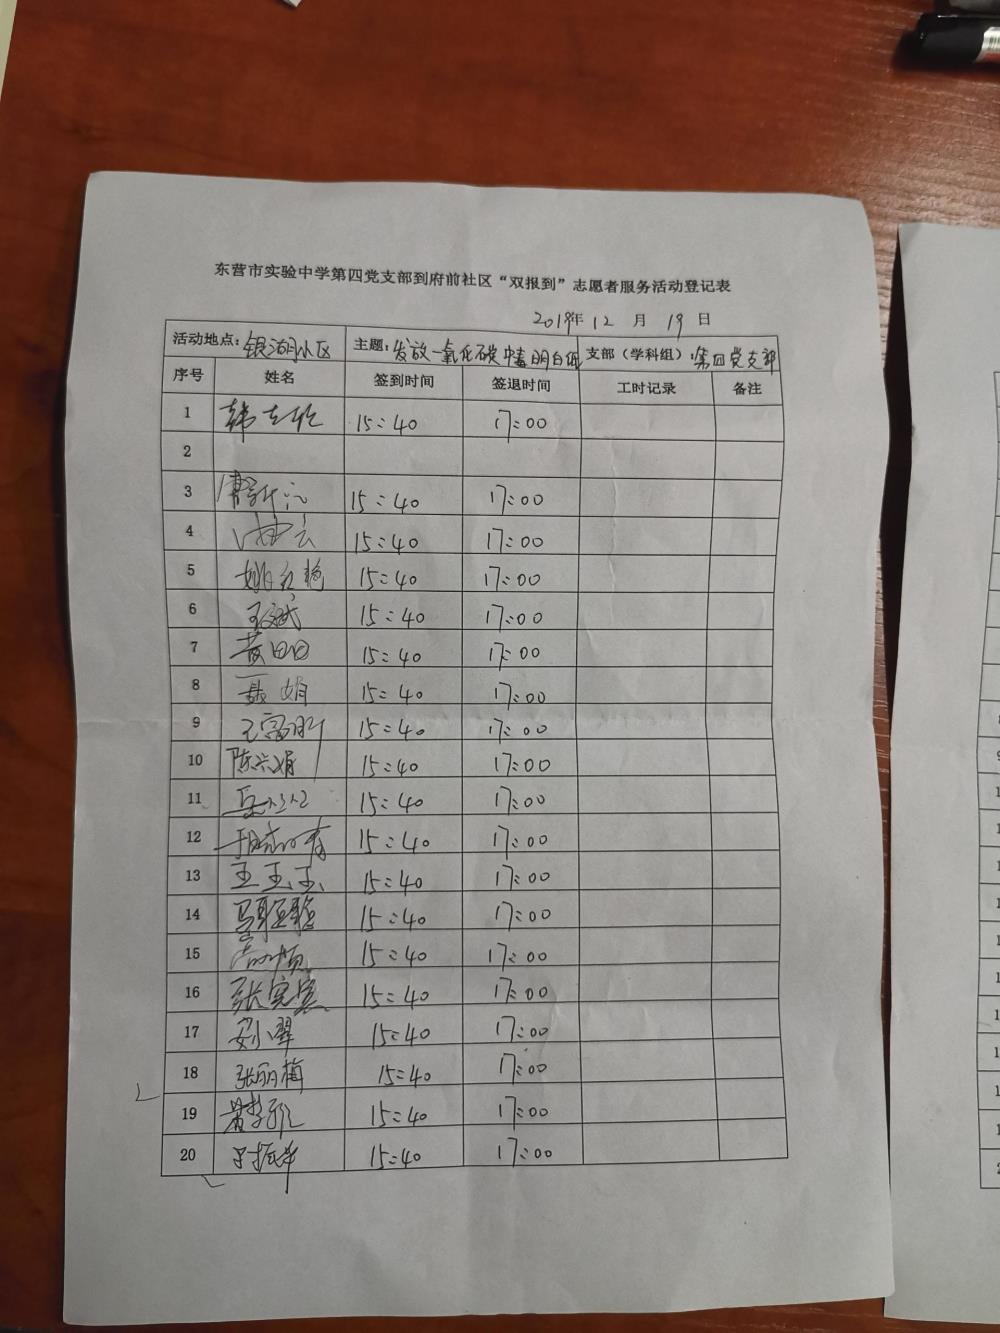 东营市实验中学第四党支部到府前社区“双报到”志愿者服务活动登记表
2019年 12 月 19 日
活动地点:银湖小区 主题:发放一氧化碳中毒明白纸 支部（学科组）:第四党支部
序号 姓名 签到时间 签退时间 工时记录 备注
1 15:40 17:00
2
3 15:40 17:00
4 15:40 17:00
5 姚红艳 15:40 17:00
6 15:40 17:00
7 黄日日 15:40 17:00
8 聂娟 15:40 17:00
9 王富明 15:40 17:00
10 陈兴娟 15:40 17:00
11 15:40 17:00
12 15:40 17:00
13 王玉玉 15:40 17:00
14 15:40 17:00
15 15:40 17:00
16 15:40 17:00
17 安小翠 15:40 17:00
18 张丽梅 15:40 17:00
19 15:40 17:00
20 15:40 17:00